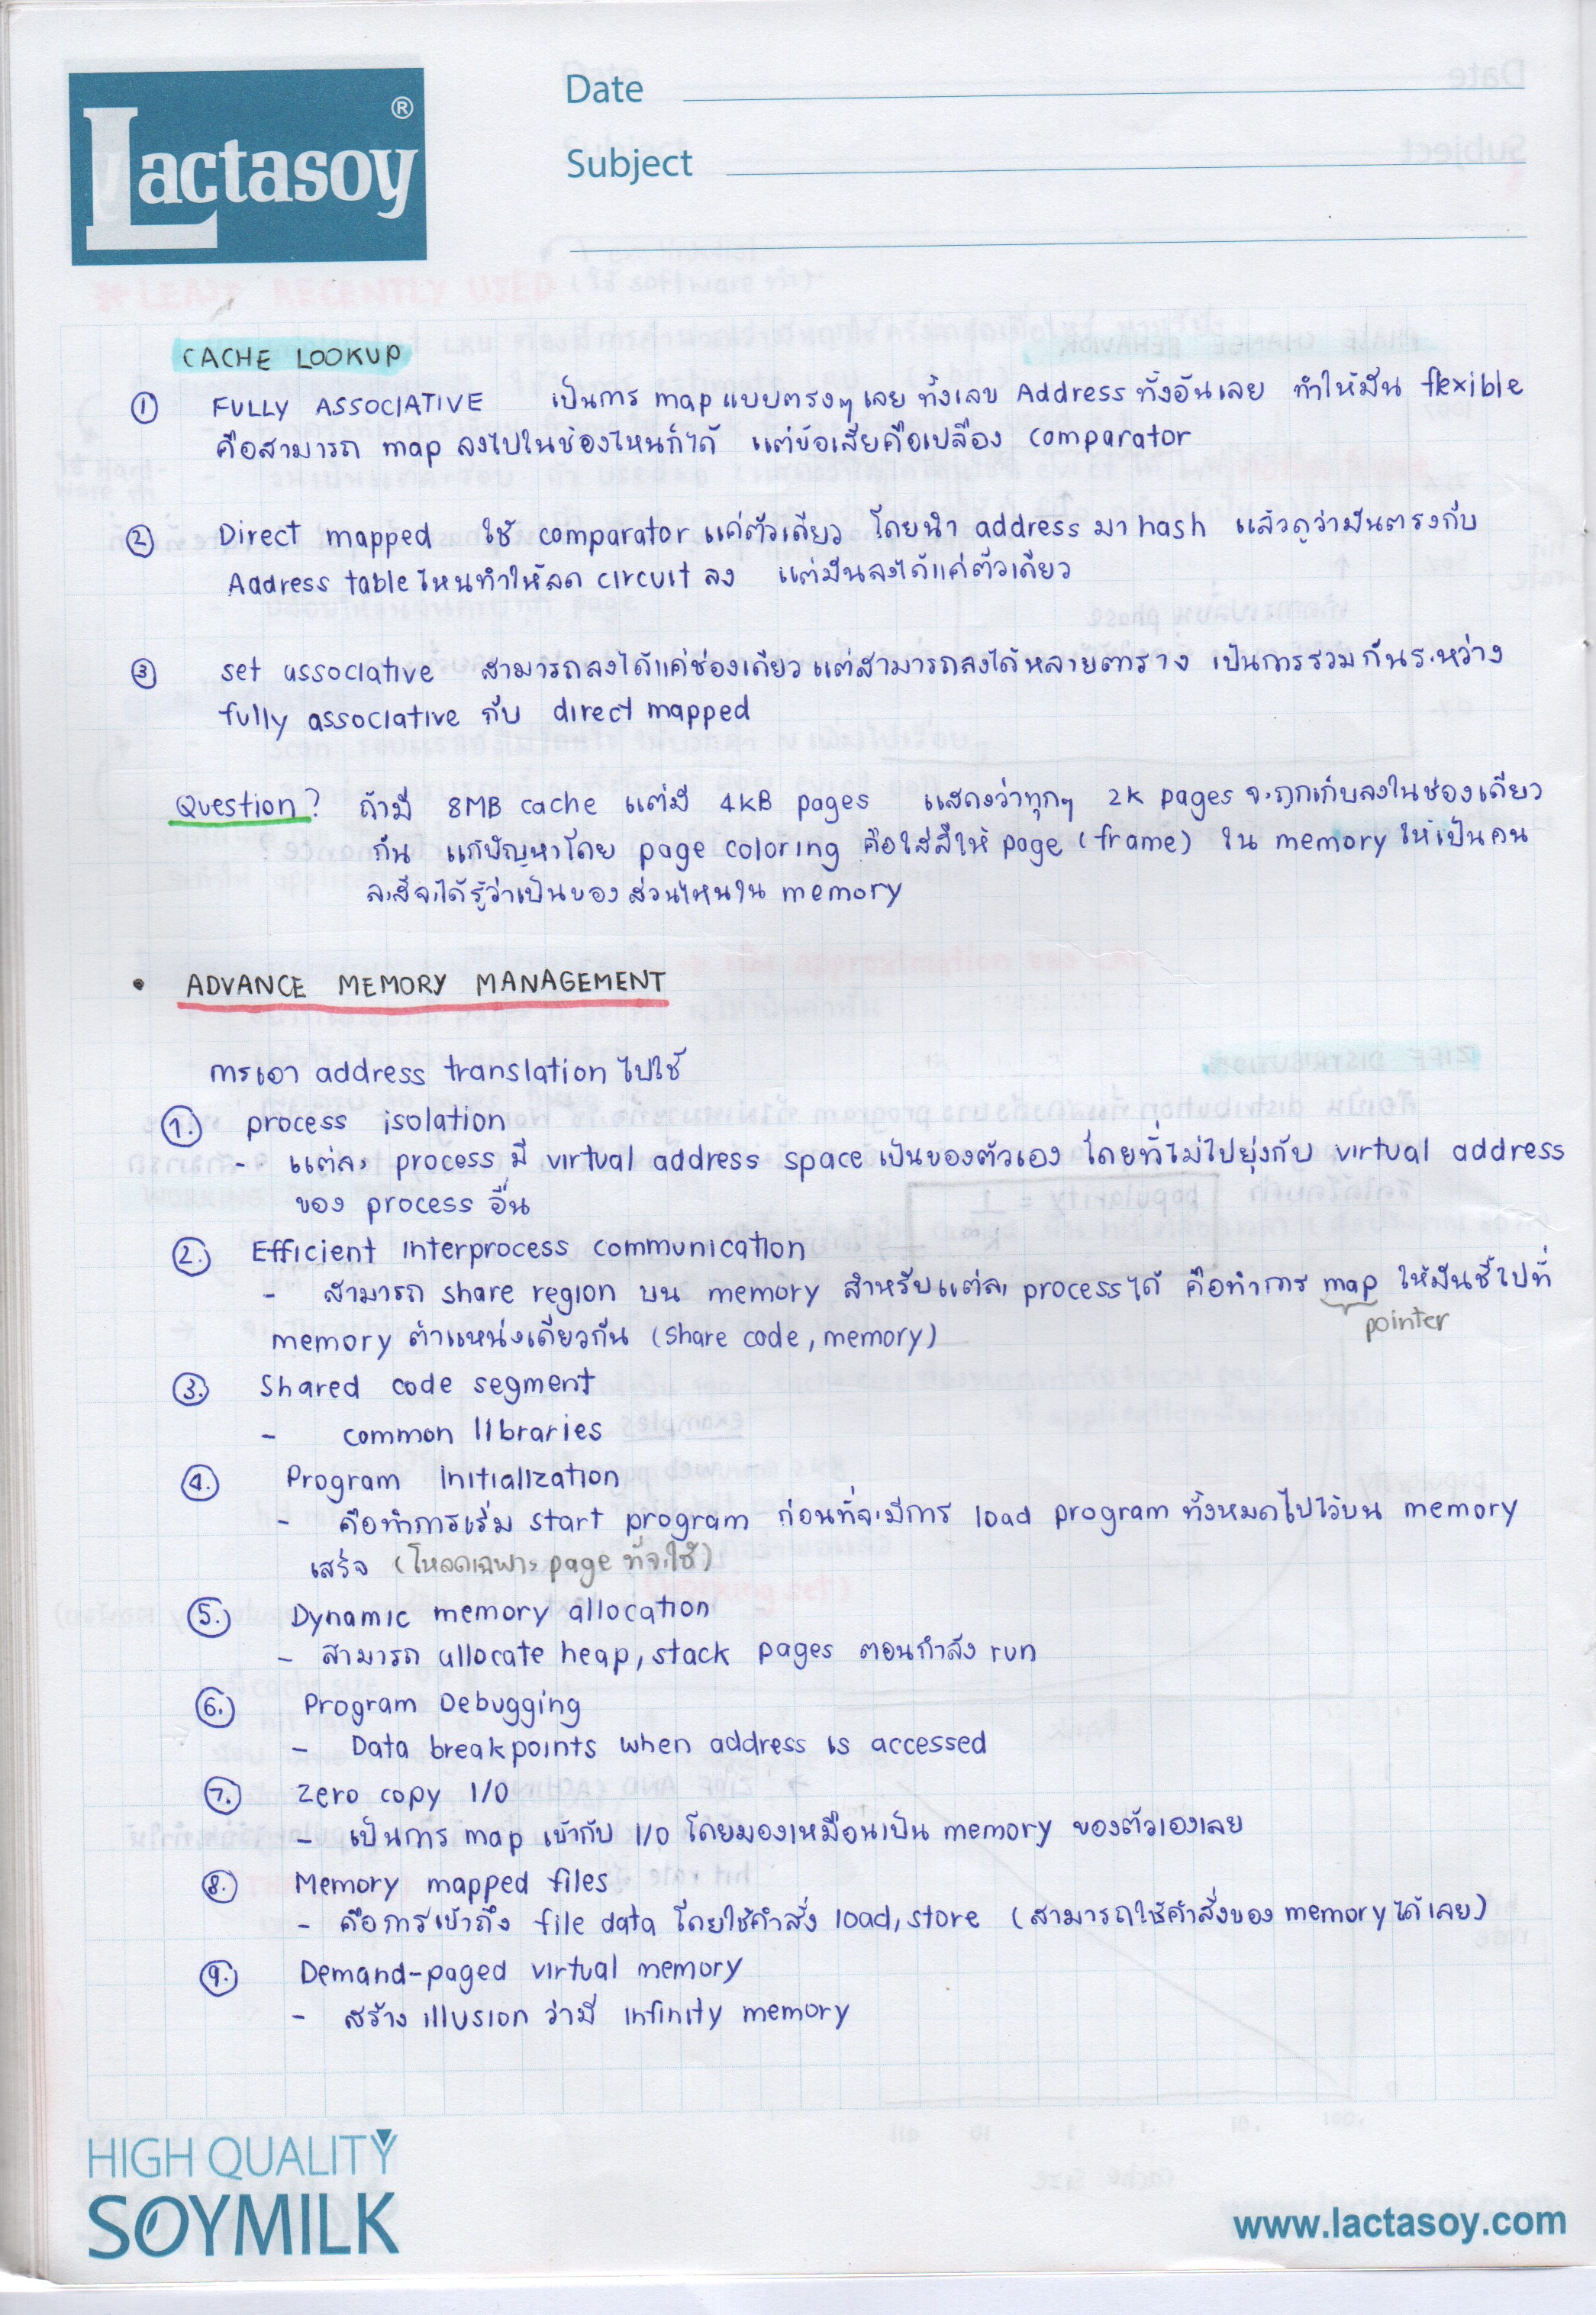 Lactasoy®
Date
Subject
CACHE LOOKUP
① FULLY ASSOCIATIVE เป็นการ map แบบตรงๆ เลย ทั้งเลข Address ทั้งอันเลย ทำให้มัน flexible
คือสามารถ map ลงไปในช่องไหนก็ได้ แต่ข้อเสียคือเปลือง comparator
② Direct mapped ใช้ comparator แค่ตัวเดียว โดยนำ address มา hash แล้วดูว่ามันตรงกับ
Address table ไหนทำให้ลด circuit ลง แต่มันลงได้แค่ตัวเดียว
③ set associative สามารถลงได้แค่ช่องเดียว แต่สามารถลงได้หลายตาราง เป็นการรวมกันระหว่าง
fully associative กับ direct mapped
Question? ถ้ามี 8MB cache แต่มี 4kB pages แสดงว่าทุกๆ 2K pages จะถูกเก็บลงในช่องเดียว
กัน แก้ปัญหาโดย page coloring คือใส่สีให้ page (frame) ใน memory ให้เป็นคน
ละสีจะได้รู้ว่าเป็นของส่วนไหนใน memory
• ADVANCE MEMORY MANAGEMENT
การเอา address translation ไปใช้
1. process isolation
- แต่ละ process มี virtual address space เป็นของตัวเอง โดยที่ไม่ไปยุ่งกับ virtual address
ของ process อื่น
2. Efficient interprocess communication
- สามารถ share region บน memory สำหรับแต่ละ process ได้ คือทำการ map ให้มันชี้ไปที่
pointer
memory ตำแหน่งเดียวกัน (share code, memory)
3. Shared code segment
- common libraries
4. Program initialization
- คือทำการเริ่ม start program ก่อนที่จะมีการ load program ทั้งหมดไปไว้บน memory
เสร็จ (โหลดเฉพาะ page ที่จะใช้)
5. Dynamic memory allocation
- สามารถ allocate heap, stack pages ตอนกำลัง run
6. Program Debugging
- Data breakpoints when address is accessed
7. Zero copy I/O
- เป็นการ map เข้ากับ I/O โดยมองเหมือนเป็น memory ของตัวเองเลย
8. Memory mapped files
- คือการเข้าถึง file data โดยใช้คำสั่ง load, store (สามารถใช้คำสั่งของ memory ได้เลย)
9. Demand-paged virtual memory
- สร้าง illusion ว่ามี infinity memory
HIGH QUALITY
SOYMILK
www.lactasoy.com